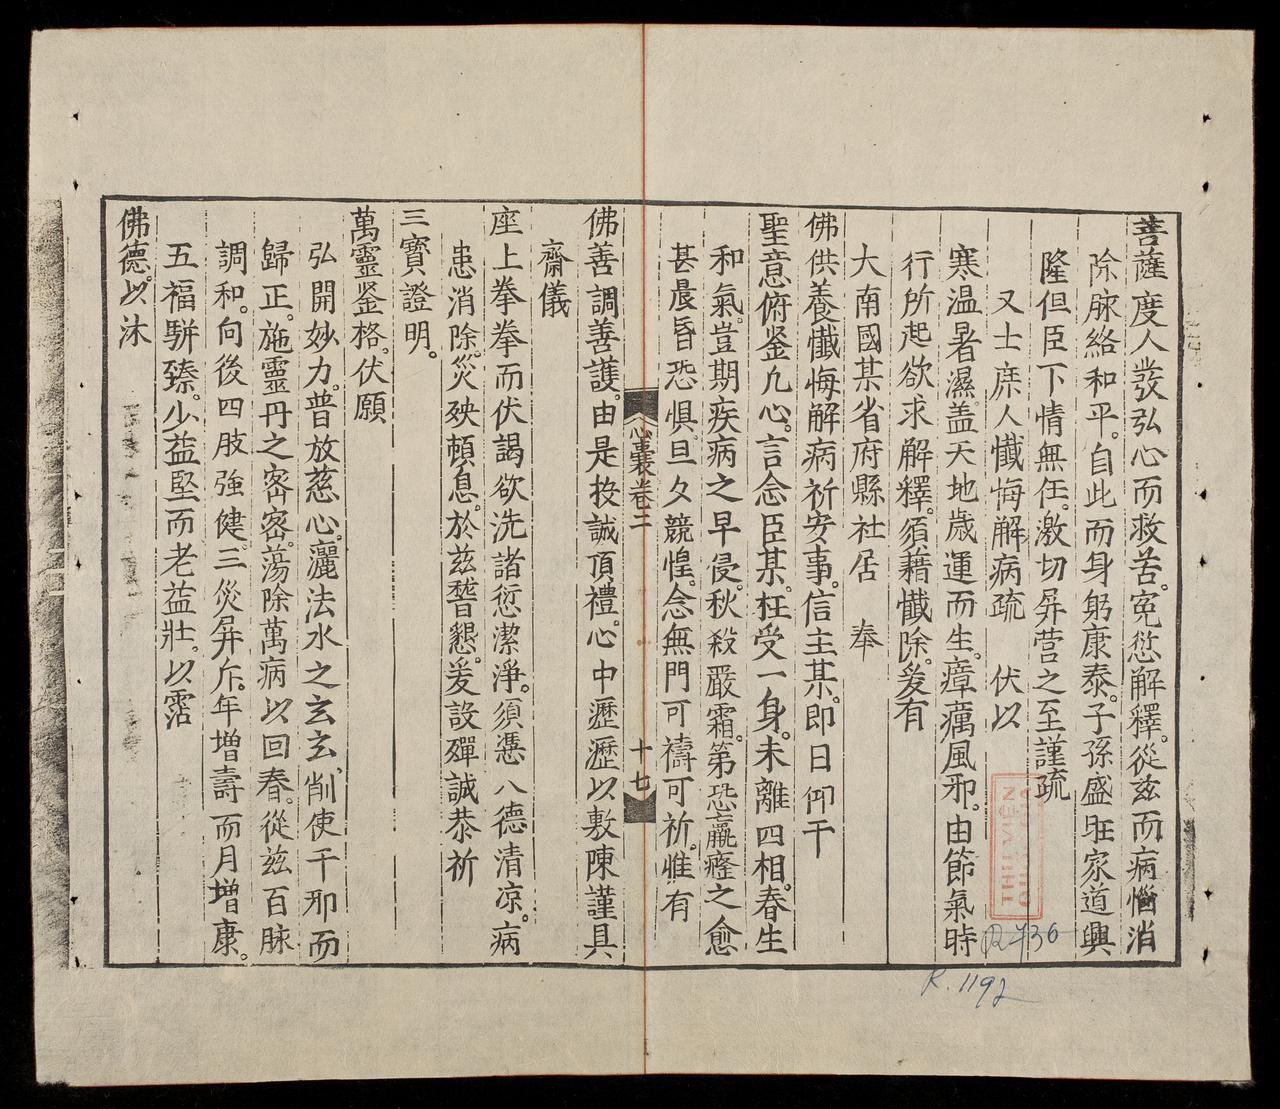 菩薩度人發弘心而救苦。冤愆解釋。從兹而病惱消
除脉絡和平。自此而身躬康泰。子孫盛旺家道興
隆但臣下情無任。激切屏营之至謹疏
又士庶人懺悔解病疏 伏以
寒温暑濕。盖天地歲運而生。瘴癘風邪。由節氣時
行所起欲求解釋。須藉懺除。爰有
大南國某省府縣社居 奉
佛供養懺悔解病祈安事。信主某。即日仰干
聖意俯鉴凢心。言念臣某。枉受一身。未離四相。春生
和氣。豈期疾病之早侵。秋殺嚴霜。第恐羸癃之愈
甚晨昏恐惧。旦夕競惶。念無門可禱可祈。惟有
心囊卷二 十七
佛善調善護。由是投誠頂禮。心中瀝瀝以敷陳謹具
齋儀
座上拳拳而伏謁欲洗諸愆潔淨。須憑八德清凉。病
恚消除。災殃頓息。於兹瞀懇。爰設殫誠恭祈
三寳證明。
萬靈鉴格。伏願
弘開妙力。普放慈心。灑法水之玄玄、削使干邪而
歸正。施靈丹之密密。蕩除萬病以回春。從兹百脉
調和。向後四肢強健。三災屏斥。年增壽而月增康。
五福駢臻。少益堅而老益壯。以霑
佛德。以沐
THƯ VIỆN
R 736
R. 1192